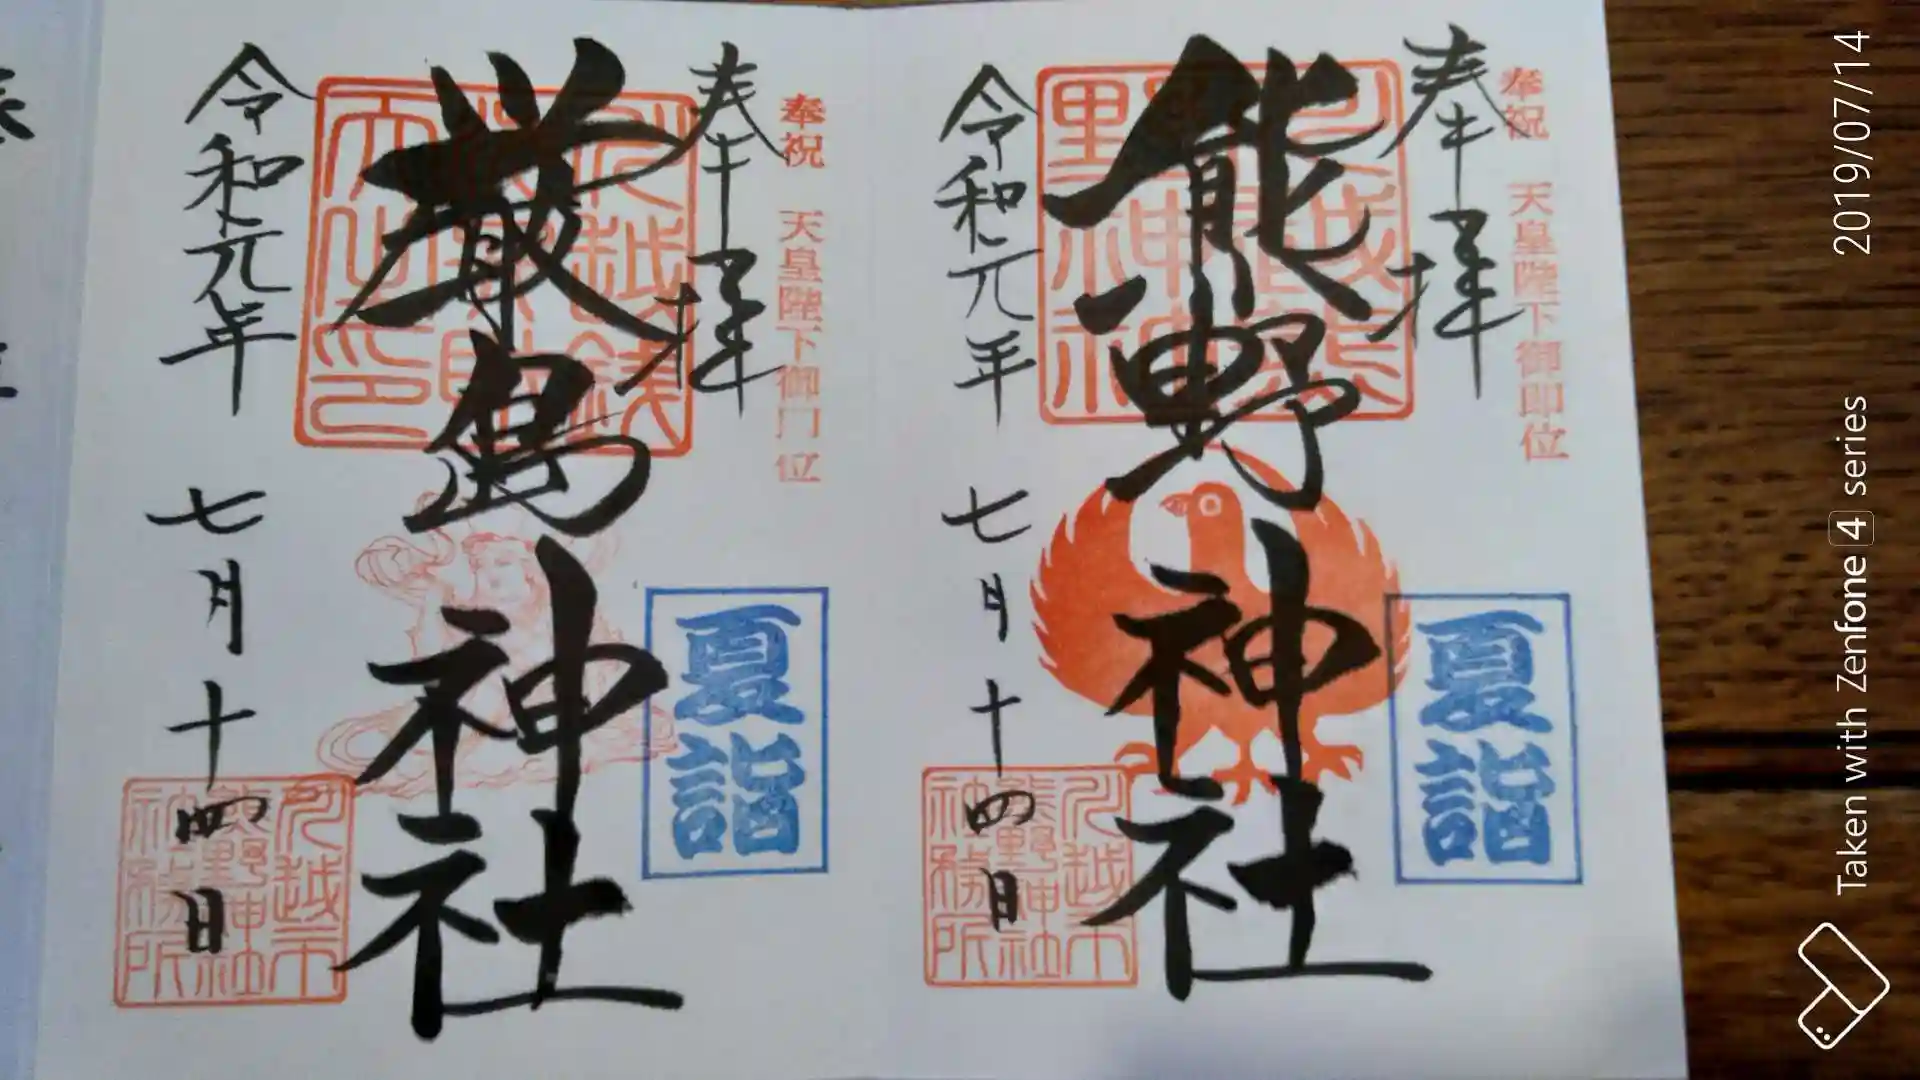 奉祝 天皇陛下御即位
奉拝
熊野神社
夏詣
令和元年 七月十四日
川越市
熊野神社
社務所
奉祝 天皇陛下御即位
奉拝
厳島神社
夏詣
令和元年 七月十四日
川越市
熊野神社
社務所
2019/07/14
Taken with Zenfone 4 series